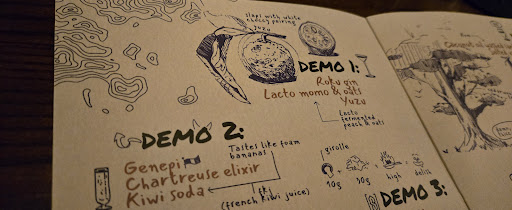 slaps with white
cherry pairing
yuzu
DEMO 1:
Roku gin
Lacto momo & oats
Yuzu
Lacto
fermented
peach & oats
DEMO 2:
Tastes like foam
bananas
Genepi
Chartreuse elixir
Kiwi soda
(french kiwi juice)
girolle
10g
50g
high
delish
DEMO 3: